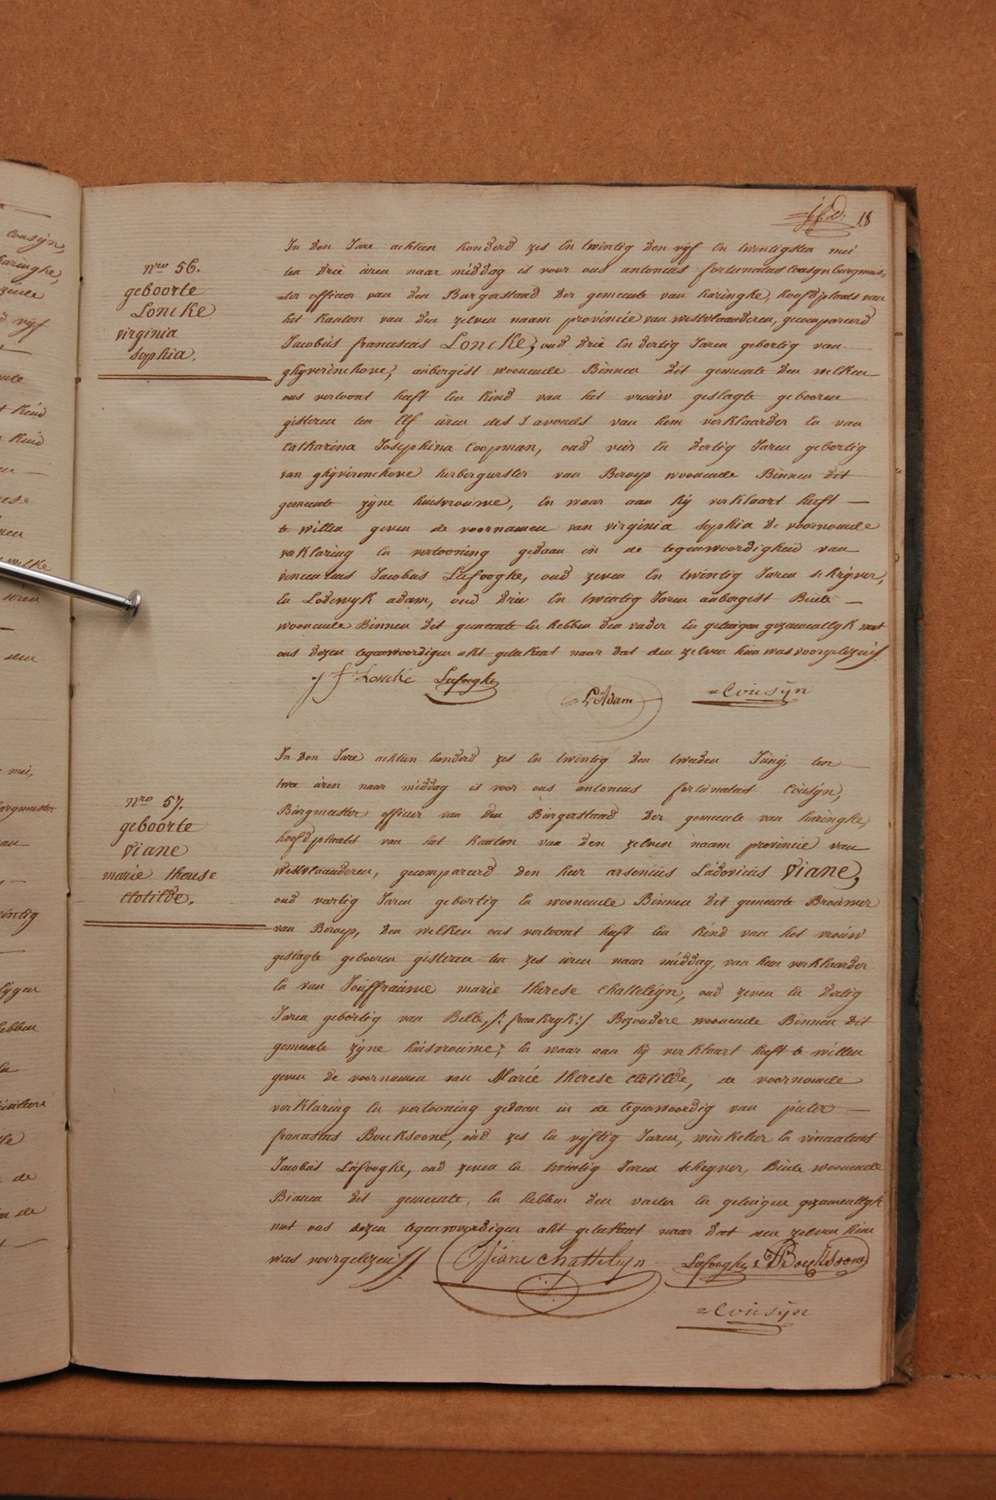 18
nro 56.
geboorte
Loncke
virginia
sophia.
In den Jare achtien honderd zes En twintig den vijf En twintigsten mei
ten drie uren naar middag is voor ons antonius fortunatus Cousyn burgmees-
-ter officier van den Burgerstaand der gemeente van haringhe, hoofdplaats van
het kanton van den zelven naam provincie van westvlaanderen, gecompareerd
Jacobus franciscus Loncke, oud drie En dertig Jaren gebortig van
ghyverinchove, aubergist woonende Binnen dit gemeente den welken
ons vertoont heeft Een kind van het vrouw geslagte geboren
gisteren ten Elf uren des S avonds van hem verklaarder En van
Catharina Josephina Coopman, oud vier En dertig Jaren gebortig
van ghyverinchove herbergierster van Beroep woonende Binnen dit
gemeente zyne huisvrouwe, En waar aan hij verklaart heeft
te willen geven de voornamen van virginia sophia de voornoemde
verklaring En vertooning gedaan in de tegenwoordigheid van
vincentius Jacobus Lafooghe, oud zeven En twintig Jaren schryver,
En Lodewyk adam, oud drie En twintig Jaren aubergist Beide
woonende Binnen dit gemeente En hebben den vader En getuigen gezamentlyk met
ons dezen tegenwoordigen akt geteekent naar dat den zelven hun was voorgelezen
J f Loncke Lafooghe
L Adam
Cousyn
nro 57.
geboorte
Viane
marie therese
Clotilde.
In den Jare achtien honderd zes En twintig den tweeden Junij ten
twee uren naar middag is voor ons antonius fortunatus Cousyn,
Burgmeester officier van den Burgerstaand der gemeente van haringhe,
hoofdplaats van het kanton van den zelven naam provincie van
westvlaanderen, gecompareerd den heer arsenius Ludovicus Viane,
oud vertig Jaren gebortig En woonende Binnen dit gemeente Brouwer
van Beroep, den welken ons vertoont heeft Een kind van het vrouw
geslagte geboren gisteren ten zes uren naar middag van hem verklaarder
En van Jouffrauwe marie therese Chattelyn, oud zeven En dertig
Jaren gebortig van Belle, /: frankryk :/ Bezondere woonende Binnen dit
gemeente zyne huisvrouwe; En waar aan hij verklaart heeft te willen
geven de voornamen van Marie therese Clotilde, de voornoemde
verklaring En vertooning gedaan in de tegenwoordig van pieter
franciscus Boucksoone, oud zes En vyftig Jaren, winkelier En vincentius
Jacobus Lafooghe, oud zeven En twintig Jaren schryver, Beide woonende
Binnen dit gemeente, En hebben den vader En getuigen gezamentlyk
met ons dezen tegenwoordigen akt geteekent naar dat den zelven hun
was voorgelezen Viane Chattelyn Lafooghe Boucksoone
Cousyn